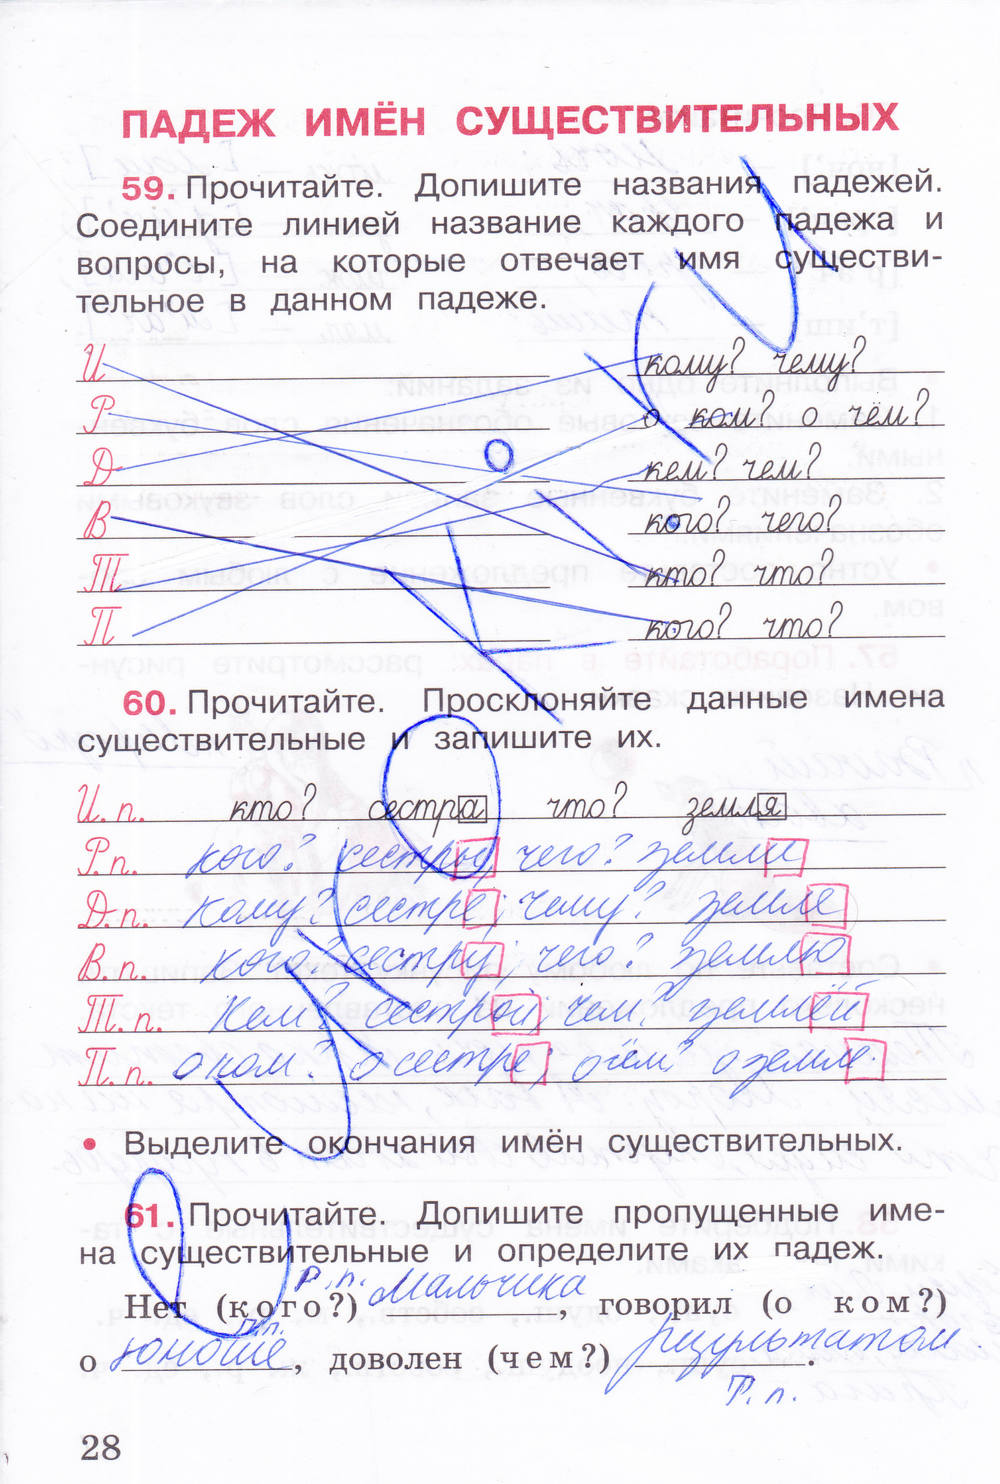 ПАДЕЖ ИМЁН СУЩЕСТВИТЕЛЬНЫХ
59. Прочитайте. Допишите названия падежей.
Соедините линией название каждого падежа и
вопросы, на которые отвечает имя существи-
тельное в данном падеже.
И кому? чему?
Р о ком? о чём?
Д кем? чем?
В кого? чего?
Т кто? что?
П кого? что?
60. Прочитайте. Просклоняйте данные имена
существительные и запишите их.
И. п. кто? сестра что? земля
Р. п. кого? сестры чего? земли
Д. п. кому? сестре, чему? земле
В. п. кого? сестру, чего? землю
Т. п. Кем? сестрой, чем? землёй
П. п. о ком? о сестре, о чём? о земле.
• Выделите окончания имён существительных.
61. Прочитайте. Допишите пропущенные име-
на существительные и определите их падеж.
Р. п.
Нет (кого?) Мальчика, говорил (о ком?)
П.п.
о юноше, доволен (чем?) результатом.
Т. п.
28